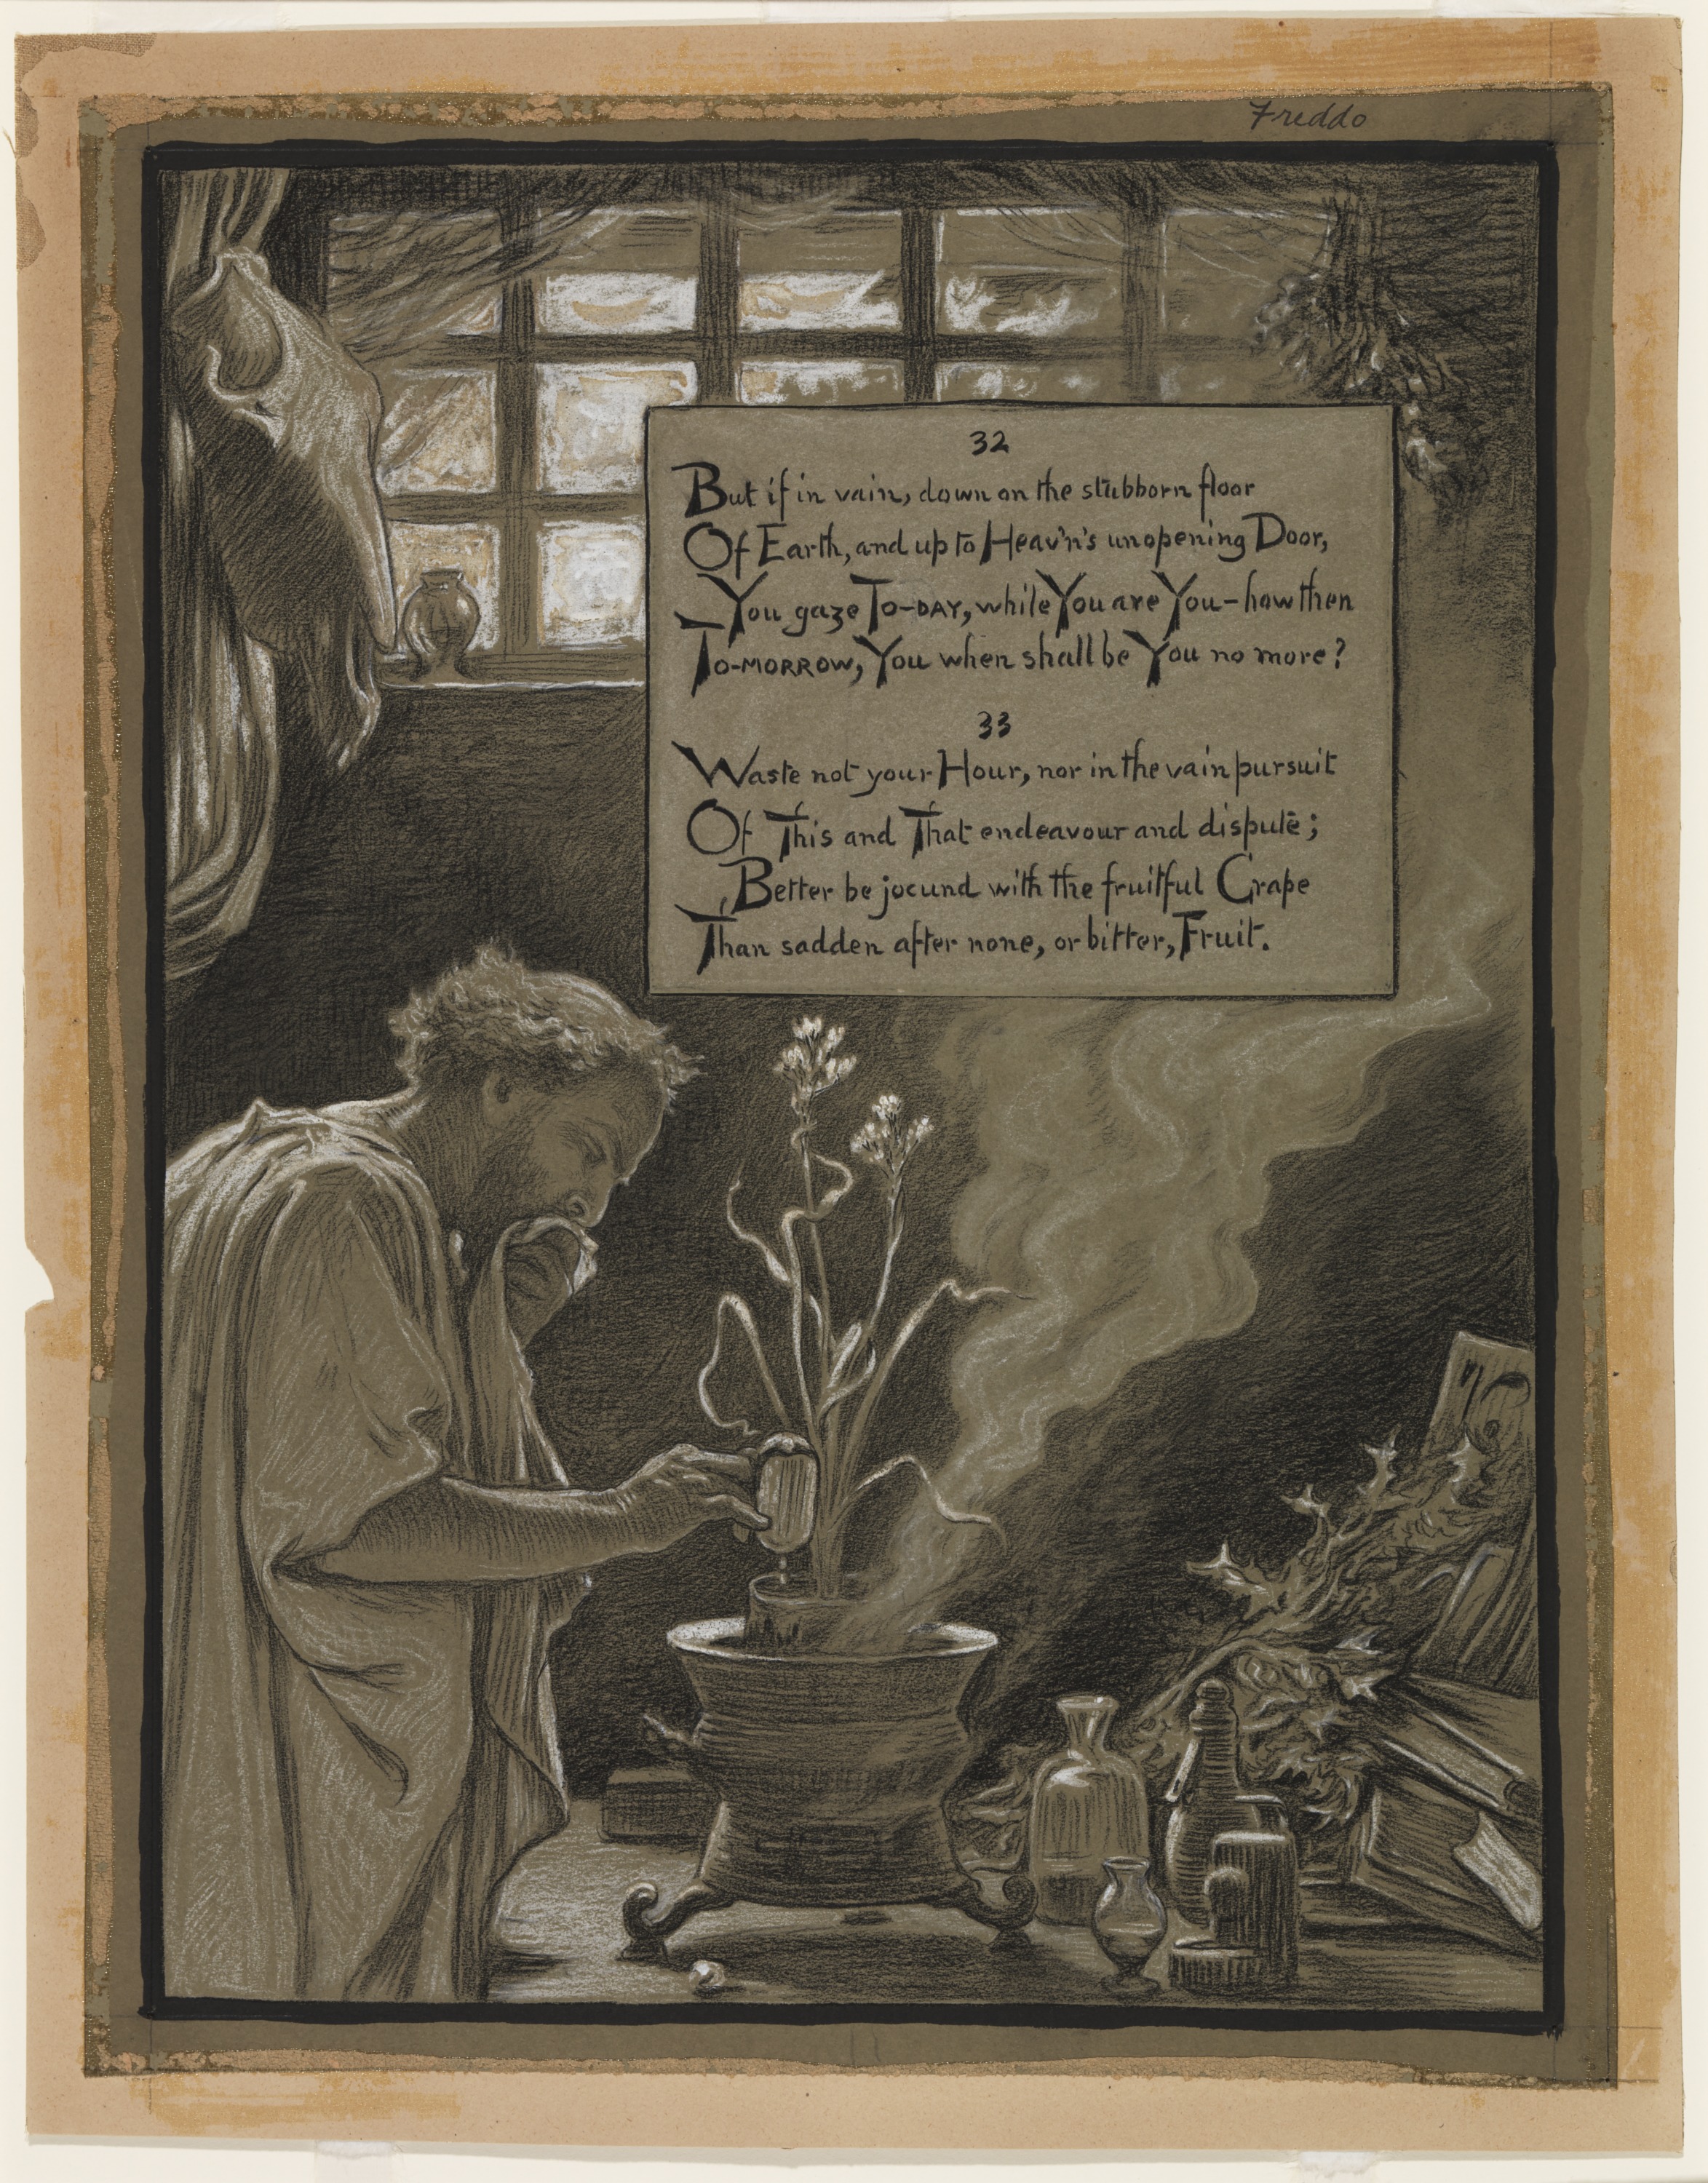 Freddo
32
But if in vain, down on the stubborn floor
Of Earth, and up to Heav'n's unopening Door,
You gaze TO-DAY, while You are You-how then
TO-MORROW, You when shall be You no more?
33
Waste not your Hour, nor in the vain pursuit
Of This and That endeavour and dispute;
Better be jocund with the fruitful Grape
Than sadden after none, or bitter, Fruit.